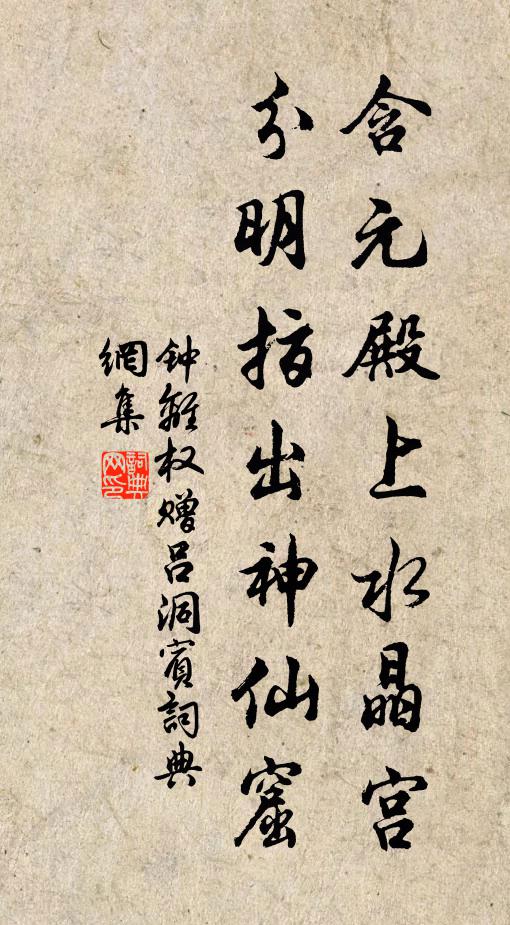 含元殿上水晶宫
分明指出神仙窟
钟離权赠吕洞賓詞典
網集
詞典
网印